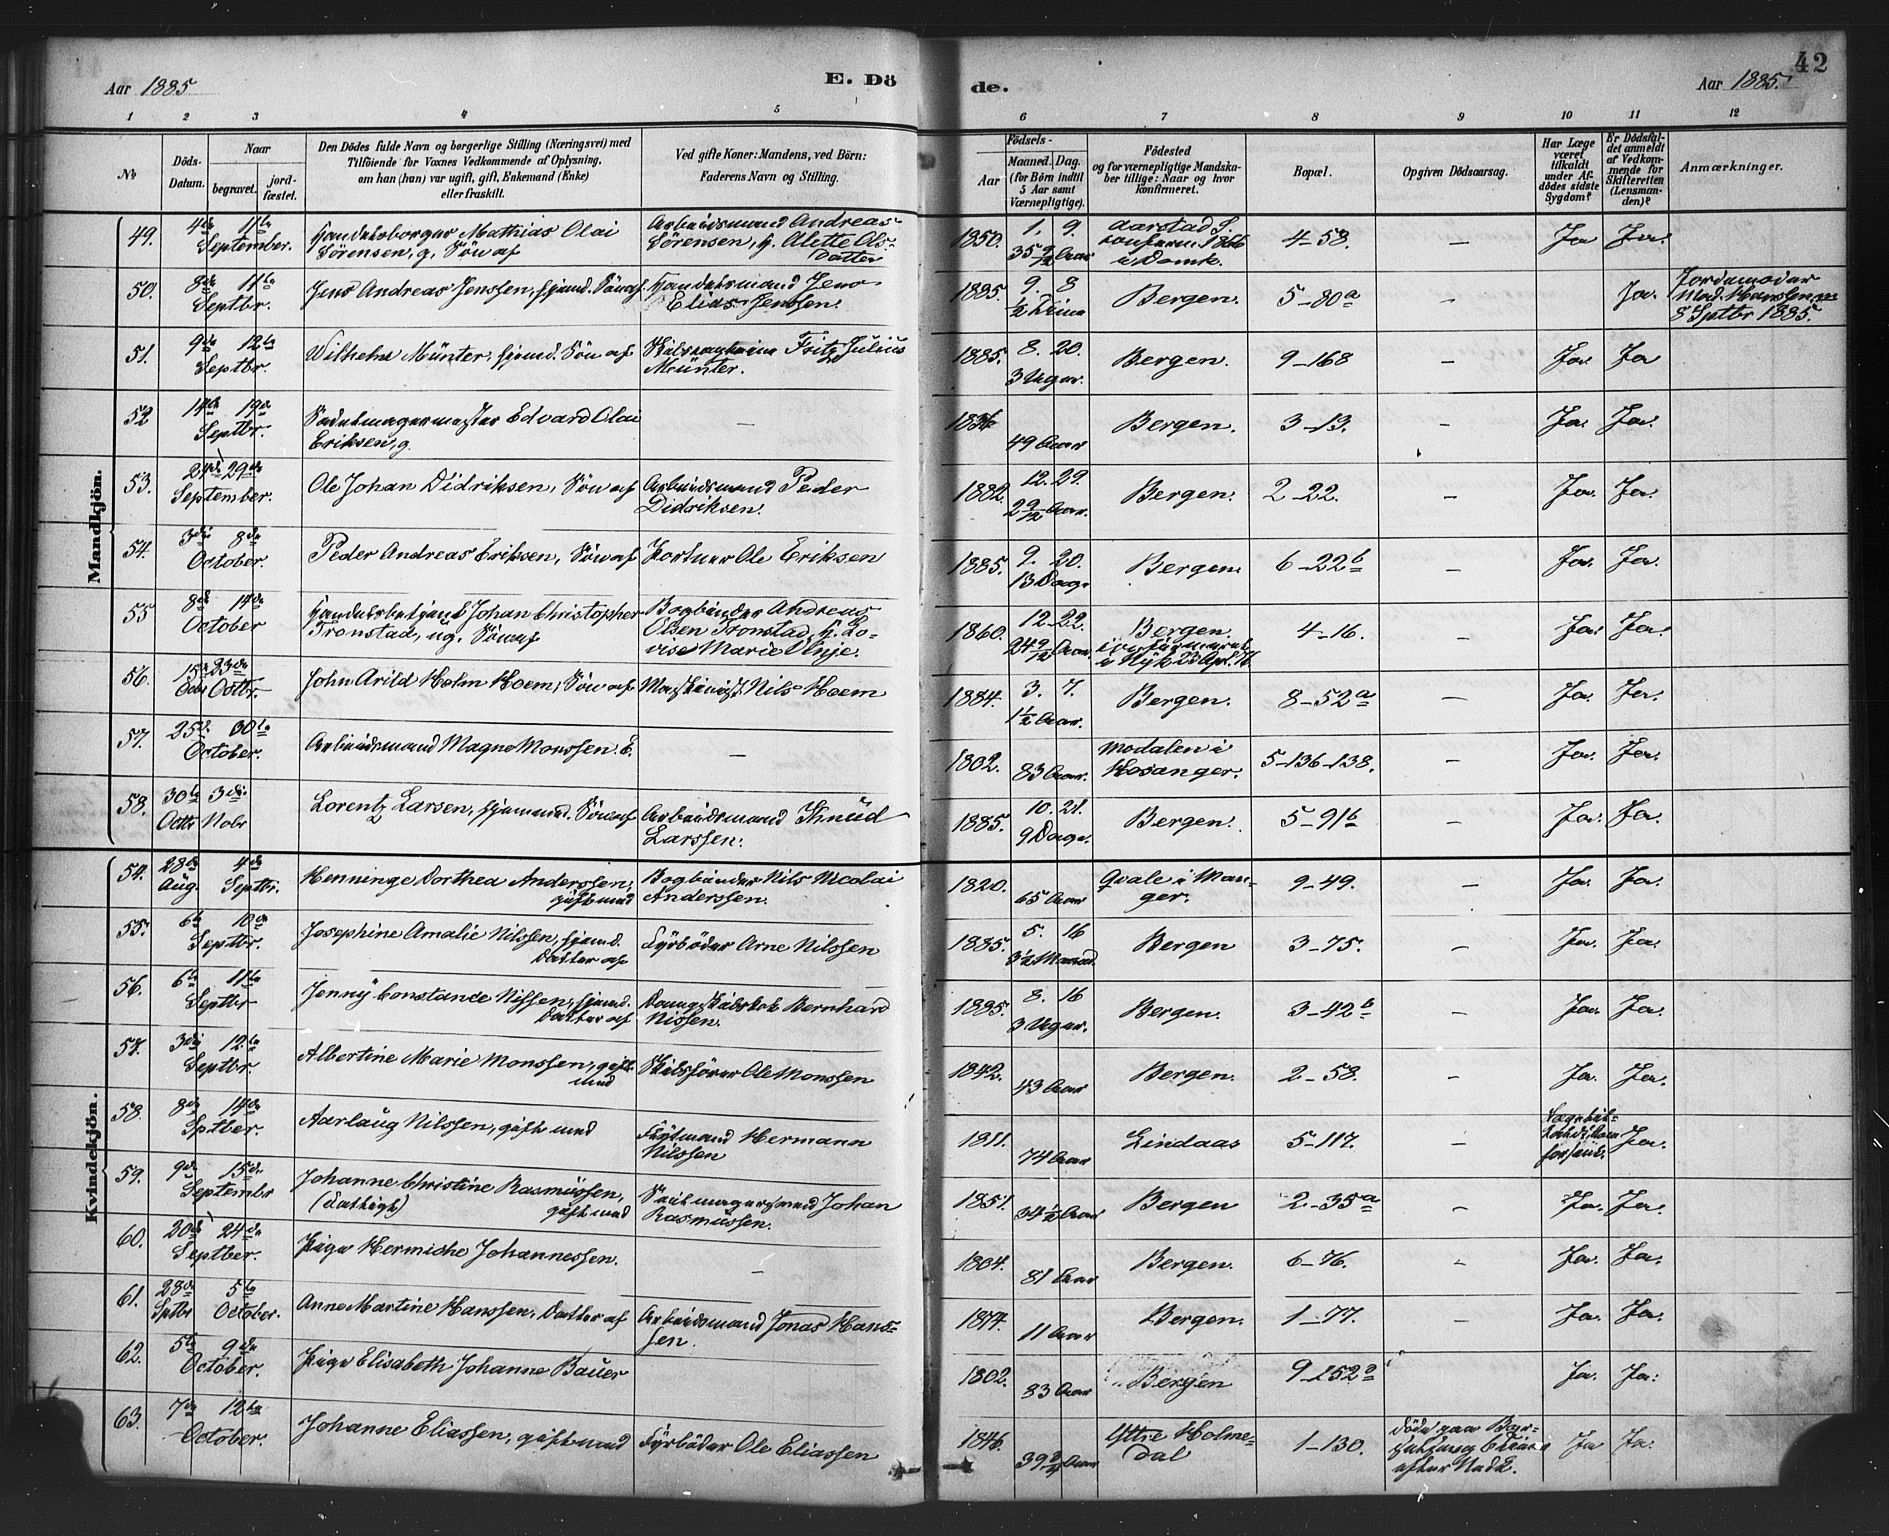 42
Aar 1885
E. Döde.
Aar 1885.
1 2 3 4 5 6 7 8 9 10 11 12
No
Döds-Datum.
Naar
begravet.
jord-fæstet.
Den Dödes fulde Navn og borgerlige Stilling (Næringsvei) med
Tilföiende for Voxnes Vedkommende af Oplysning,
om han (hun) var ugift, gift, Enkemand (Enke)
eller fraskilt.
Ved gifte Koner: Mandens, ved Börn:
Faderens Navn og Stilling.
Födsels-
Aar
Maaned. Dag.
(for Börn indtil
5 Aar samt
Værnepligtige).
Födested
og for værnepligtige Mandska-
ber tillige: Naar og hvor
konfirmeret.
Bopæl.
Opgiven Dödsaarsag.
Har Læge
været
tilkaldt
under Af-
dödes sidste
Sygdom?
Er Dödsfal-
det anmeldt
af Vedkom-
mende for
Skifteretten
(Lensman-
den)?
Anmærkninger.
Mandkjön.
49. 4de 11te September. Handelsborger Mathias Olai Sörensen, g. Sön af Arbeidsmand Andreas Sörensen, h. Alette Ols-datter 1850. 1. 9. 35 9/12 Aar Aarstad S. konfirm. 1866 i Domk. 4-58. - Ja Ja.
50. 8de 11te Septbr. Jens Andreas Jenssen, hjemd. Sön af Handelsmand Jens Elias Jenssen. 1885. 9. 8 1/2 Time Bergen. 5-80a Ja. Jordemoder Mad. Hanssen 8 Sptbr 1885.
51. 9de 12te Septbr. Wilhelm Münter, hjemd. Sön af Fritz Julius Münter. 1885. 8. 20. 3 Uger. Bergen. 9-168 - Ja. Ja
52 14de 19de Septbr. Sadelmagermester Edvard Olai Eriksen, g. - 1836 49 Aar Bergen. 3-13. - Ja. Ja.
53. 24de 29de September. Ole Johan Didriksen, Sön af Arbeidsmand Peder Didriksen. 1882. 12. 29. 2 9/12 Aar. Bergen. 2-22. - Ja. Ja.
54. 3die 8de October. Peder Andreas Eriksen, Sön af Portner Ole Eriksen 1885. 9. 20. 13 Dage Bergen. 6-22b - Ja. Ja.
55 8de 14de October Handelsbetjent Johan Christopher Tronstad, ug. Sön af Bogbinder Andreas Olsen Tronstad, h. Lovise Marie 1860. 12. 22. 24 9/12 Aar. Bergen. 4-16. - Ja. Ja.
56. 15de 23de Octbr. John Arild Holm Hoem, Sön af Maskinist Nils Hoem 1884. 3. 7. 1 1/2 Aar. Bergen. 8-52a - Ja. Ja.
57. 25de 30te October. Arbeidsmand Magne Monssen. E. - 1802. 83 Aar. Modalen i Hosanger. 5-136-138. - Ja. Ja.
58. 30te Octbr 3die Nobr Lorentz Larsen, hjemmed. Sön af Arbeidsmand Knud Larssen. 1885. 10. 21. 9 Dage. Bergen. 5-91b - Ja. Ja.
Kvindekjön.
54. 28de Aug. 4de Septbr. Henninge Dorthea Anderssen, gift med Bogbinder Nils Nicolai Anderssen. 1820. 65 Aar Qvale i Manger. 9-49. - Ja. Ja.
55. 6te 10de Septbr. Josephine Amalie Nilssen, hjemd. Datter af Fyrböder Arne Nilssen 1885. 5. 16 3 1/2 Maaned. Bergen 3-75. - Ja. Ja.
56. 6te 11te Septbr Jenny Constance Nissen, hjemd. Datter af Bernhard Nissen. 1885. 8. 16 3 Uger. Bergen. 3-42b - Ja. Ja.
57. 3die 12te Septbr Albertine Marie Monssen, gift med Skibsförer Ole Monssen 1842. 43 Aar Bergen. 2-58. - Ja. Ja.
58. 8de 14de Sptber. Aarlaug Nilssen, gift med Hermann Nilssen 1811. 74 Aar Lindaas 5-117. - Ja.
59. 9de 15de Septembr Johanne Christine Rasmussen, (fattigt) gift med Johan Rasmussen. 1851. 34 1/2 Aar Bergen 2-35a - Ja. Ja.
60. 20de 24de Septber. Pige Hermiche Johannessen. - 1804. 81 Aar Bergen. 6-76. - Ja. Ja.
61. 28de Sptbr 5te October. Anne Martine Hanssen, Datter af Arbeidsmand Jonas Hanssen. 1874. 11 Aar Bergen. 1-77. - Ja. Ja.
62. 5te 9de October. Pige Elisabeth Johanne Bauer 1802. 83 Aar Bergen 9-152a Ja. Ja.
63. 7de 12te October. Johanne Eliassen, gift med Fyrböder Ole Eliassen 1846. 39 3/4 Aar Yttre Holmedal 1-130. Död paa efter Ja Ja.